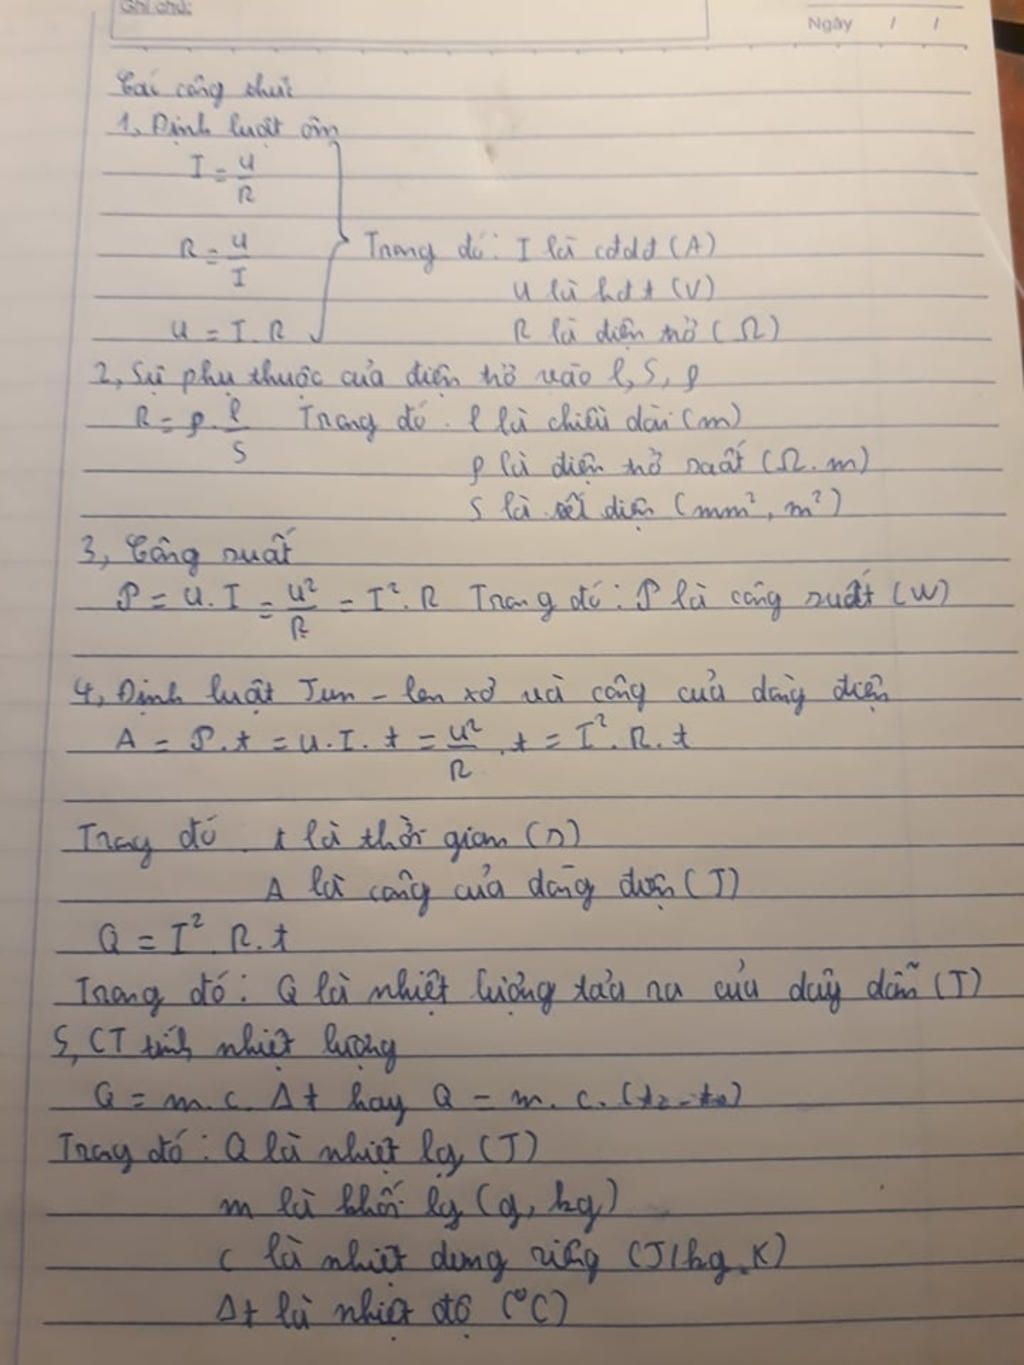 Ghi chú:
Ngày / /
Các công thức
1, Định luật ôm
I = U/R
R = U/I Trong đó: I là cđdđ (A)
U là hđt (V)
U = I.R R là điện trở (Ω)
2, Sự phụ thuộc của điện trở vào l, S, ρ
R = ρ.l/S Trong đó. l là chiều dài (m)
ρ là điện trở suất (Ω.m)
S là tiết diện (mm², m²)
3, Công suất
P = U.I = U²/R = I².R Trong đó: P là công suất (W)
4, Định luật Jun - len xơ và công của dòng điện
A = P.t = U.I.t = U²/R.t = I².R.t
Trong đó t là thời gian (s)
A là công của dòng điện (J)
Q = I².R.t
Trong đó: Q là nhiệt lượng tỏa ra của dây dẫn (J)
5, CT tính nhiệt lượng
Q = m.c.Δt hay Q = m.c.(t₂ -
Trong đó: Q là nhiệt lg (J)
m là khối lg (g, kg)
c là nhiệt dung riêng (J/kg.K)
Δt là nhiệt độ (°C)